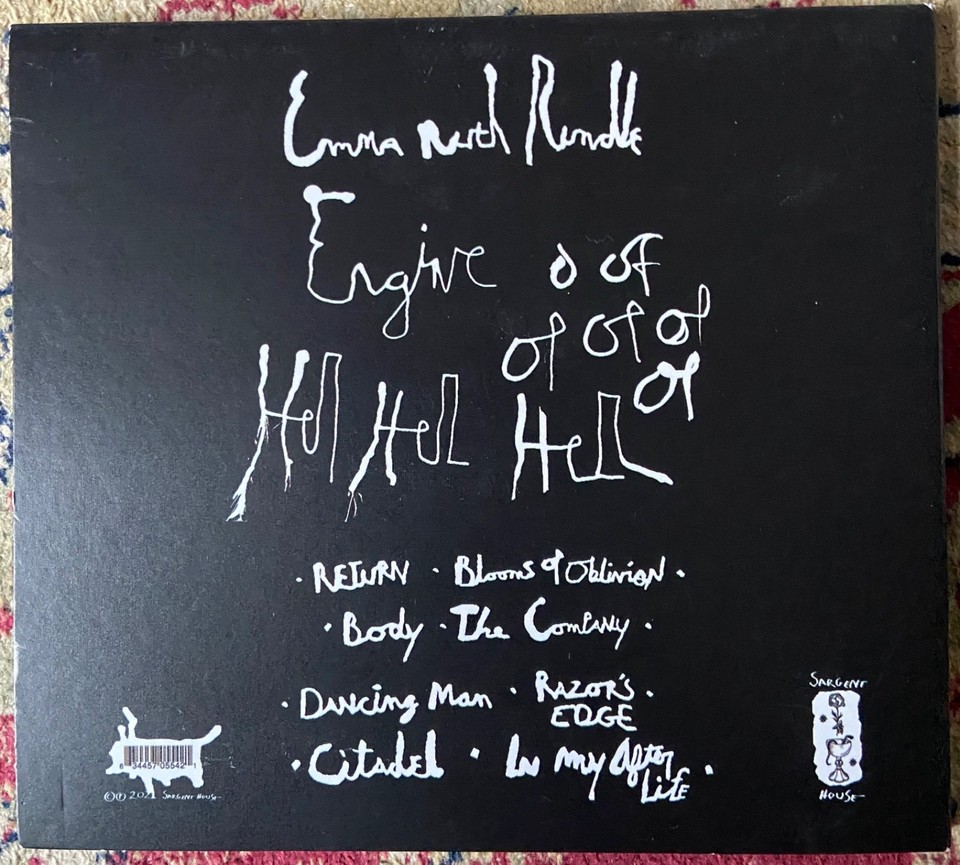 Emma Ruth Rundle
Engine o of
of of of
of
Hell Hell Hell
· RETURN · Blooms of Oblivion ·
· Body · The Company ·
· Dancing Man · RAZOR'S ·
EDGE
· Citadel · In my After
Life ·
SARGENT
HOUSE
8 34457 05542 1
©℗ 2021 SARGENT HOUSE